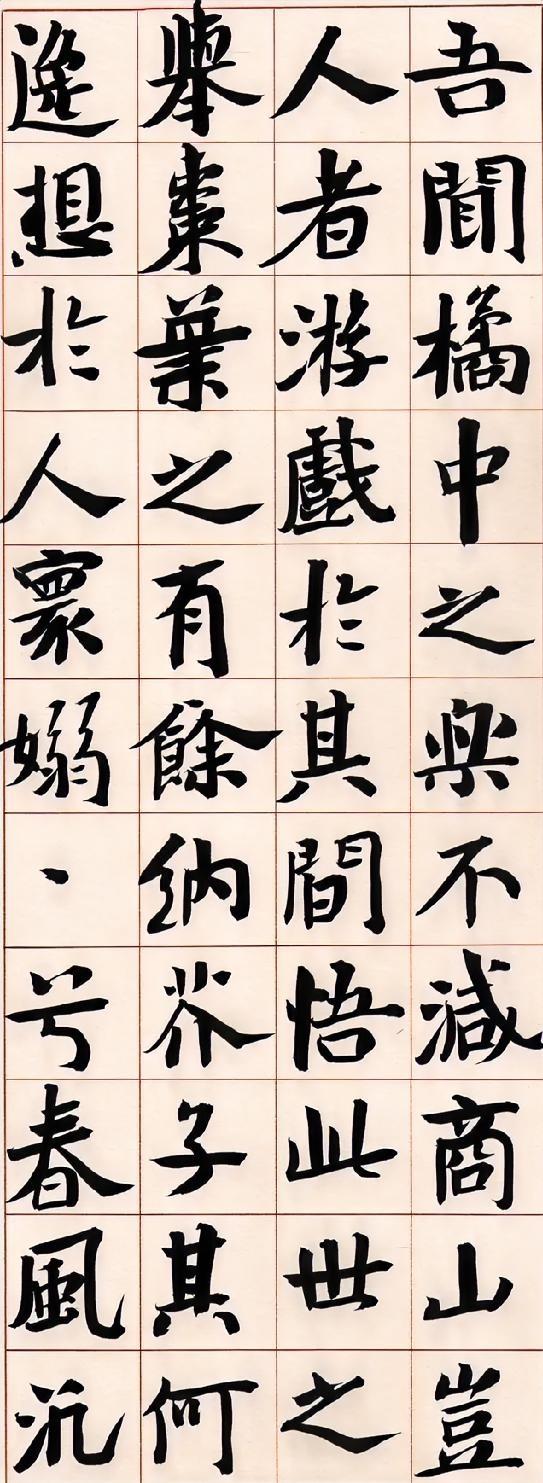 吾聞橘中之樂不減商山豈
人者游戲於其間悟此世之
舉棗葉之有餘納芥子其何
逸想於人寰嫋、兮春風汎